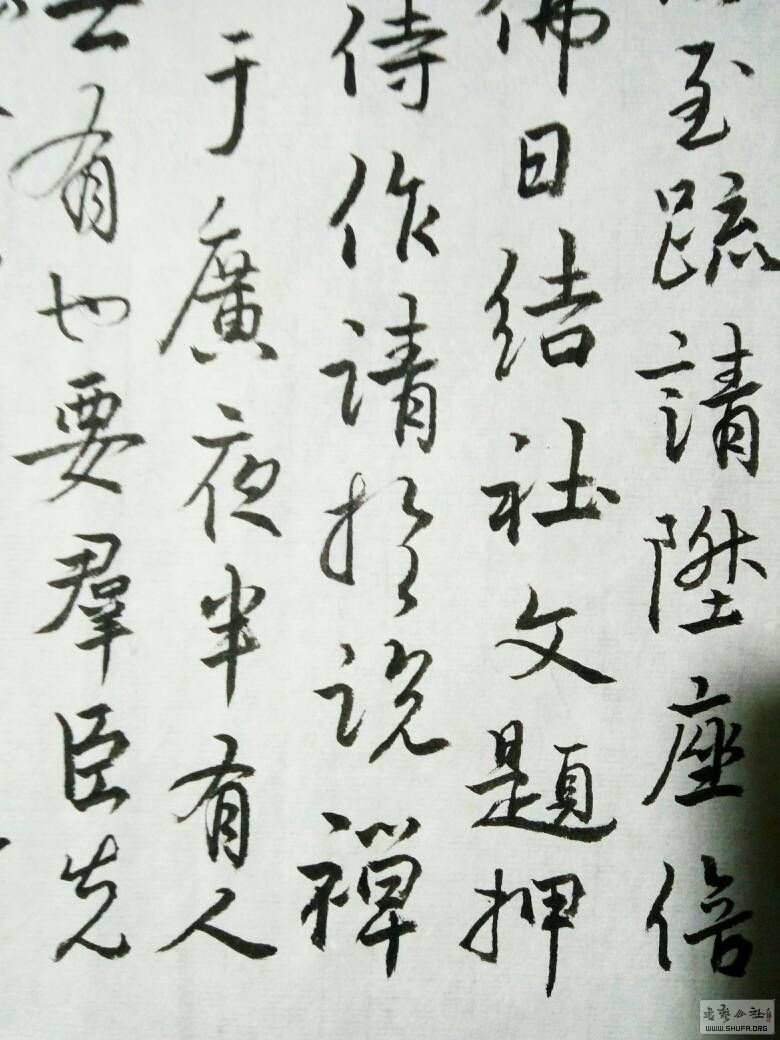 至疏請陞座倍
佛日结社文題押
侍作請拈说禪
于廣夜半有人
有也要羣臣先
WWW.SHUFA.ORG